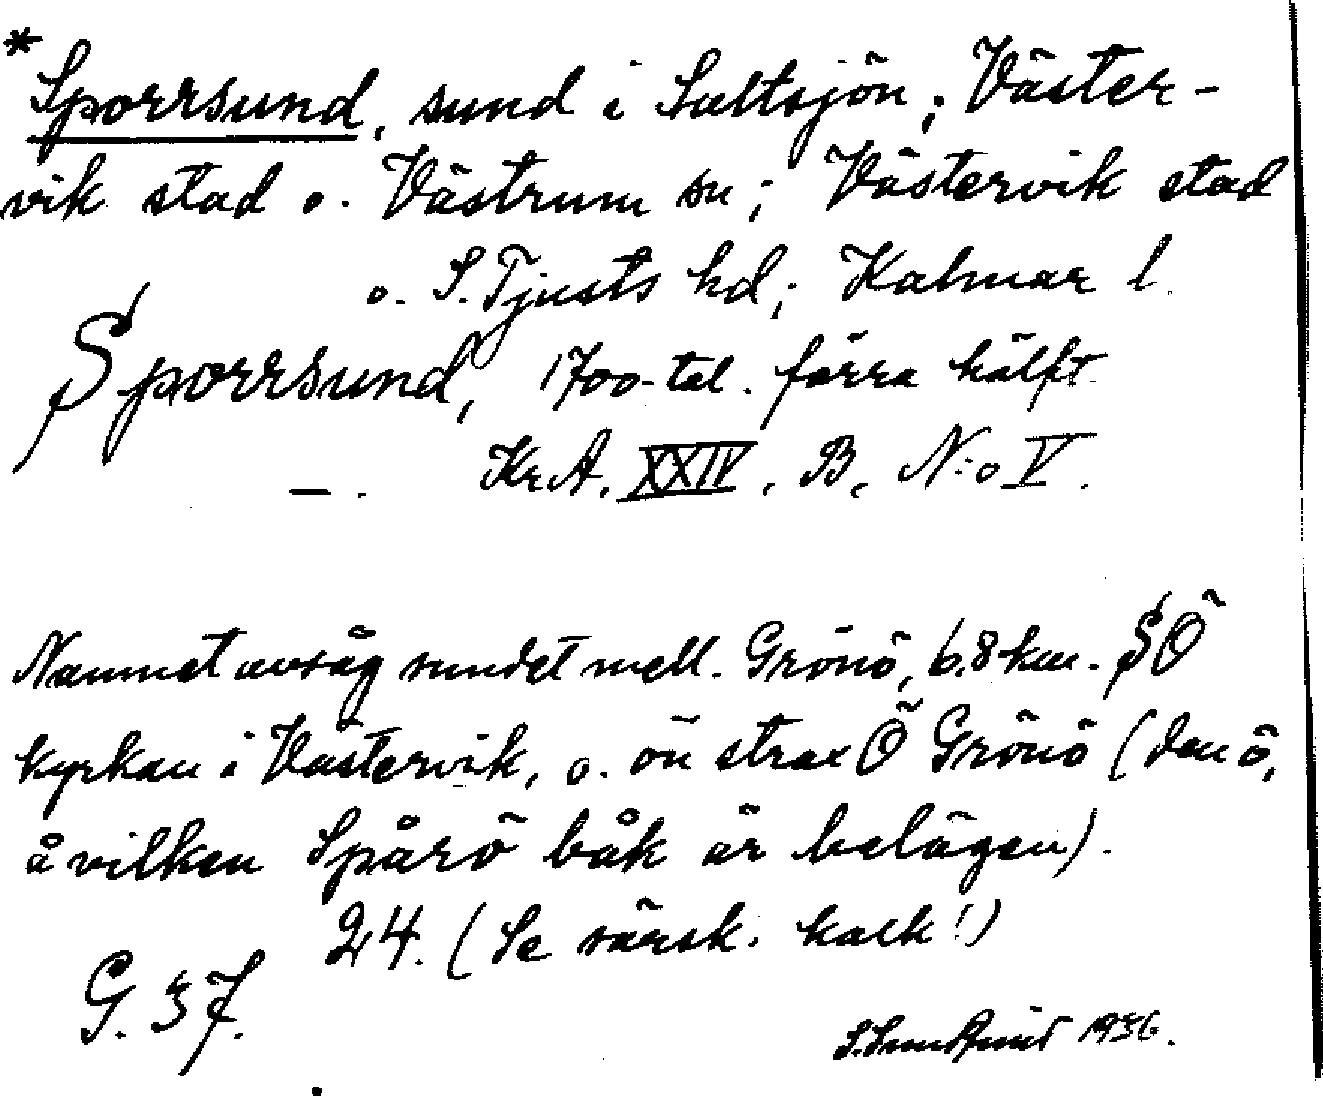 *
Sporrsund, sund i Saltsjön; Väster-
vik stad o. Västrum sn; Västervik stad
o. S. Tjusts hd; Kalmar l.
Sporrsund, 1700-tal. förra hälft.
— . Kr.A. XXIV, B, N:o V.
Namnet avsåg sundet mell. Grönö, 6.8 km. SÖ
kyrkan i Västervik, o. ön strax Ö Grönö (den ö,
å vilken Spårö båk är belägen).
24. (Se särsk. kalk!)
G. 37.
1936.